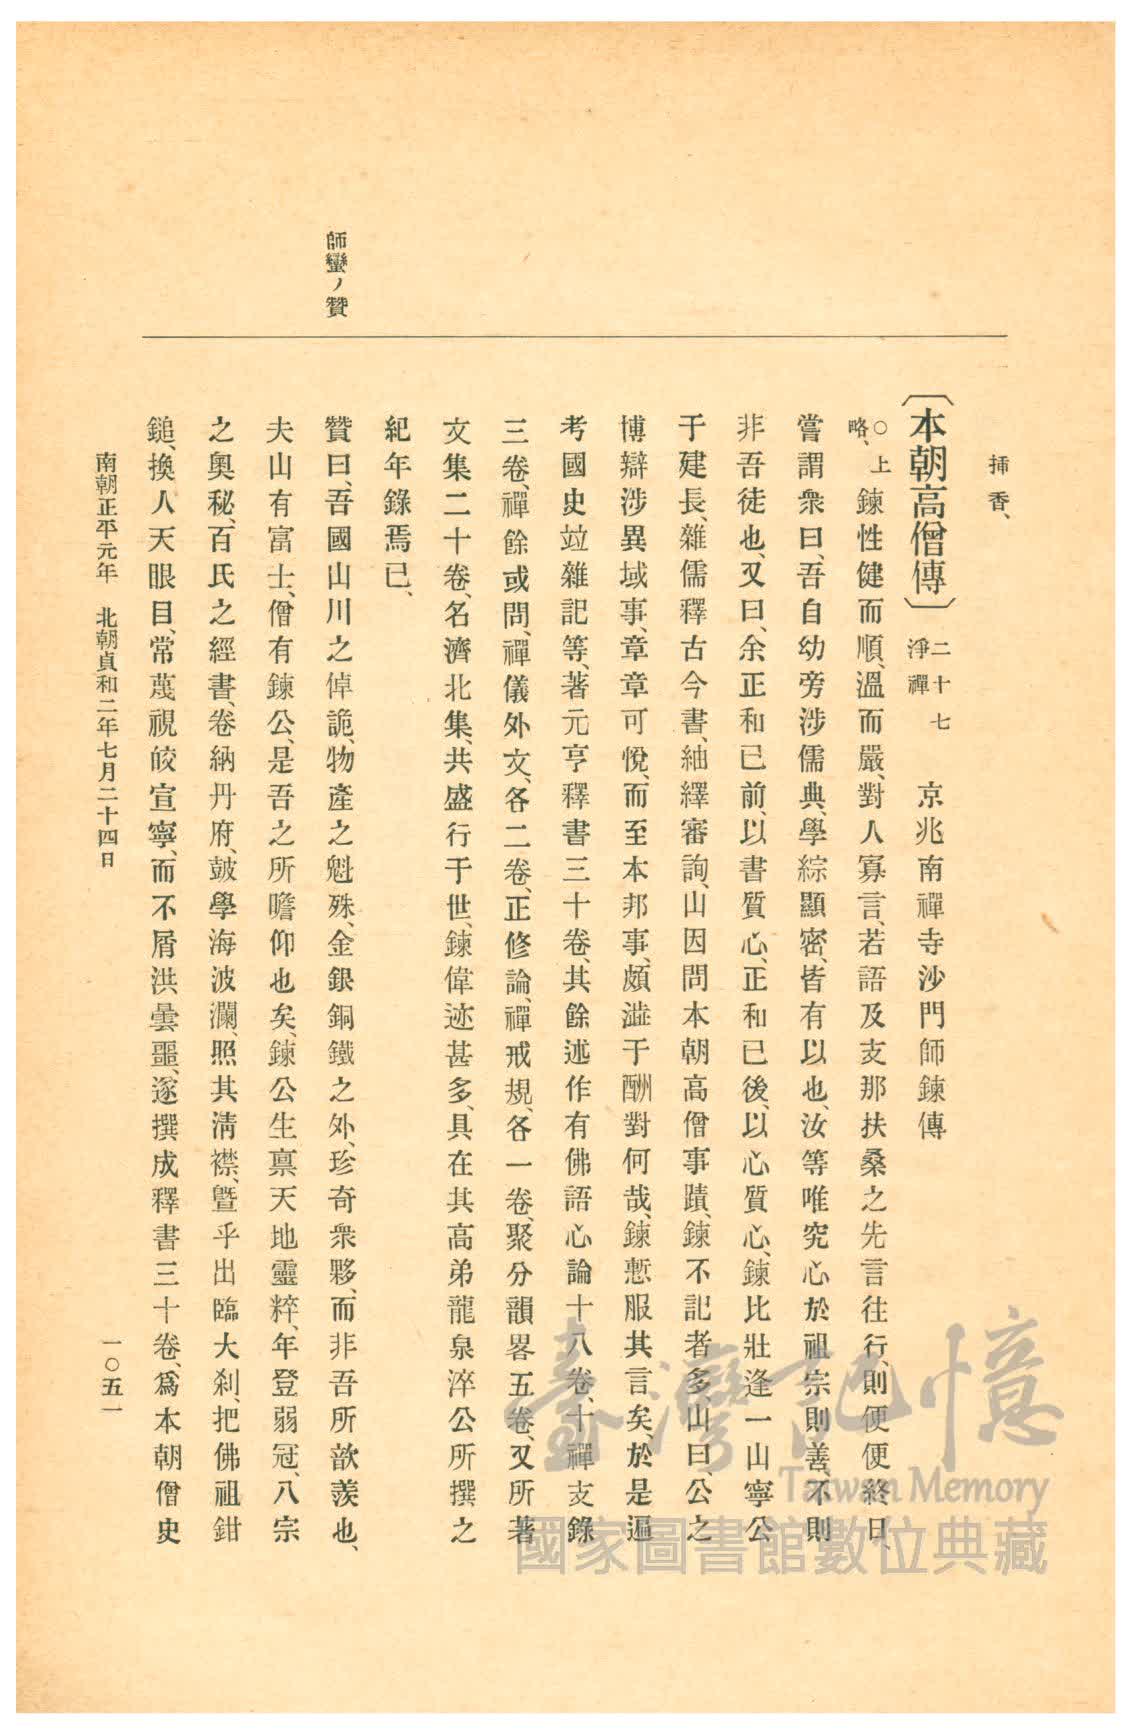 挿香、
〔本朝高僧傳〕二十七淨禪 京兆南禪寺沙門師鍊傳
○上略、鍊性健而順、溫而嚴、對人寡言、若語及支那扶桑之先言往行、則便便終日、
嘗謂衆曰、吾自幼旁涉儒典、學綜顯密、皆有以也、汝等唯究心於祖宗則善、不則
非吾徒也、又曰、余正和已前、以書質心、正和已後、以心質心、鍊比壯逢一山寧公
于建長、雜儒釋古今書、紬繹審詢、山因問本朝高僧事蹟、鍊不記者多、山曰、公之
博辯涉異域事、章章可悅、而至本邦事、頗澁于酬對何哉、鍊慙服其言矣、於是遍
考國史竝雜記等、著元亨釋書三十卷、其餘述作有佛語心論十八卷、十禪支錄
三卷、禪餘或問、禪儀外文、各二卷、正修論、禪戒規、各一卷、聚分韻畧五卷、又所著
文集二十卷、名濟北集、共盛行于世、鍊偉迹甚多、具在其高弟龍泉淬公所撰之
紀年錄焉已、
師蠻ノ贊
贊曰、吾國山川之倬詭、物產之魁殊、金銀銅鐵之外、珍奇衆夥、而非吾所歆羨也、
夫山有富士、僧有鍊公、是吾之所瞻仰也矣、鍊公生禀天地靈粹、年登弱冠、八宗
之奧秘、百氏之經書、卷納丹府、皷學海波瀾、照其淸襟、曁乎出臨大刹、把佛祖鉗
鎚、換人天眼目、常蔑視皎宣寧、而不屑洪曇噩、遂撰成釋書三十卷、爲本朝僧史
南朝正平元年 北朝貞和二年七月二十四日
一〇五一
臺灣記憶
Taiwan Memory
國家圖書館數位典藏